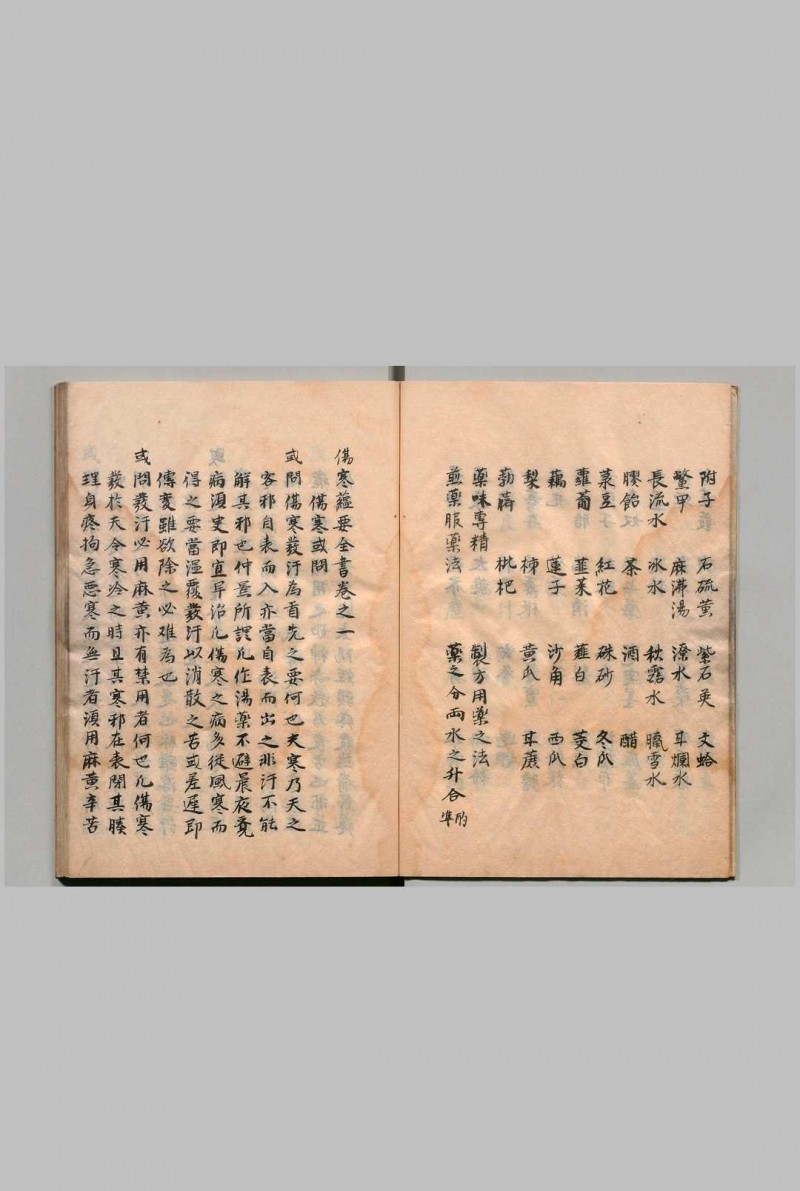 附子 石硫黄 紫石英 文蛤
鱉甲 麻沸湯 潦水 甘爛水
長流水 冰水 秋露水 臘雪水
膠飴 茶 酒 醋
菉豆 紅花 硃砂 冬瓜
蘿蔔 韮菜 薤白 茭白
藕 蓮子 沙角 西瓜
梨 柿 黄瓜 甘蔗
葧薺 枇杷
藥味專精 製方用藥之法
煎藥服藥法 藥之分兩水之升合 酌準
傷寒蘊要全書卷之一
傷寒或問
或問傷寒發汗為首先之要何也夫寒乃天之
客邪自表而入亦當自表而出之非汗不能
解其邪也仲景所謂凡作湯藥不避晨夜覺
病須臾即宜早治凡傷寒之病多從風寒而
得之要當温覆發汗以消散之苦或差遲即
傳变雖欲除之必难為也
或問發汗必用麻黄亦有禁用者何也凡傷寒
發於天令寒冷之時且其寒邪在表閉其腠
理身疼拘急恶寒而無汗者須用麻黄辛苦